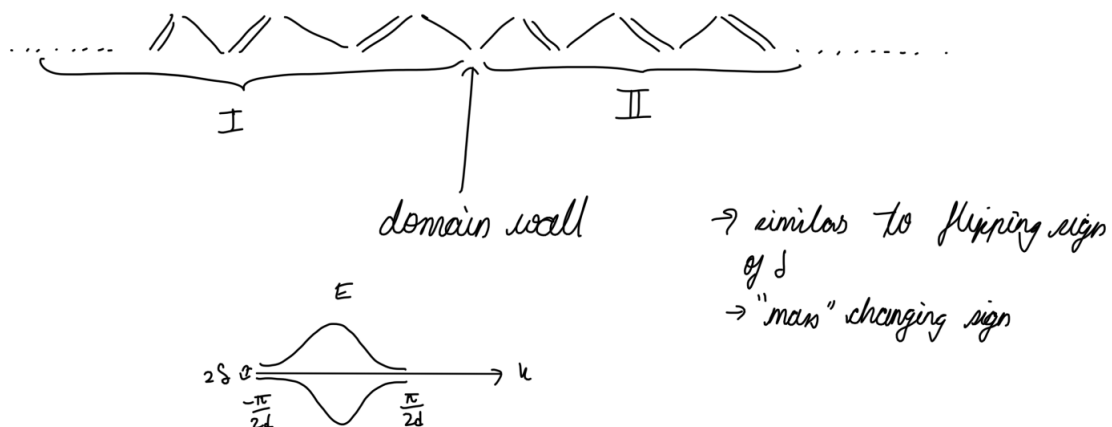 I
II
domain wall
→ similar to flipping sign
of δ
→ "mass" changing sign
E
2δ
k
-π/2d
π/2d